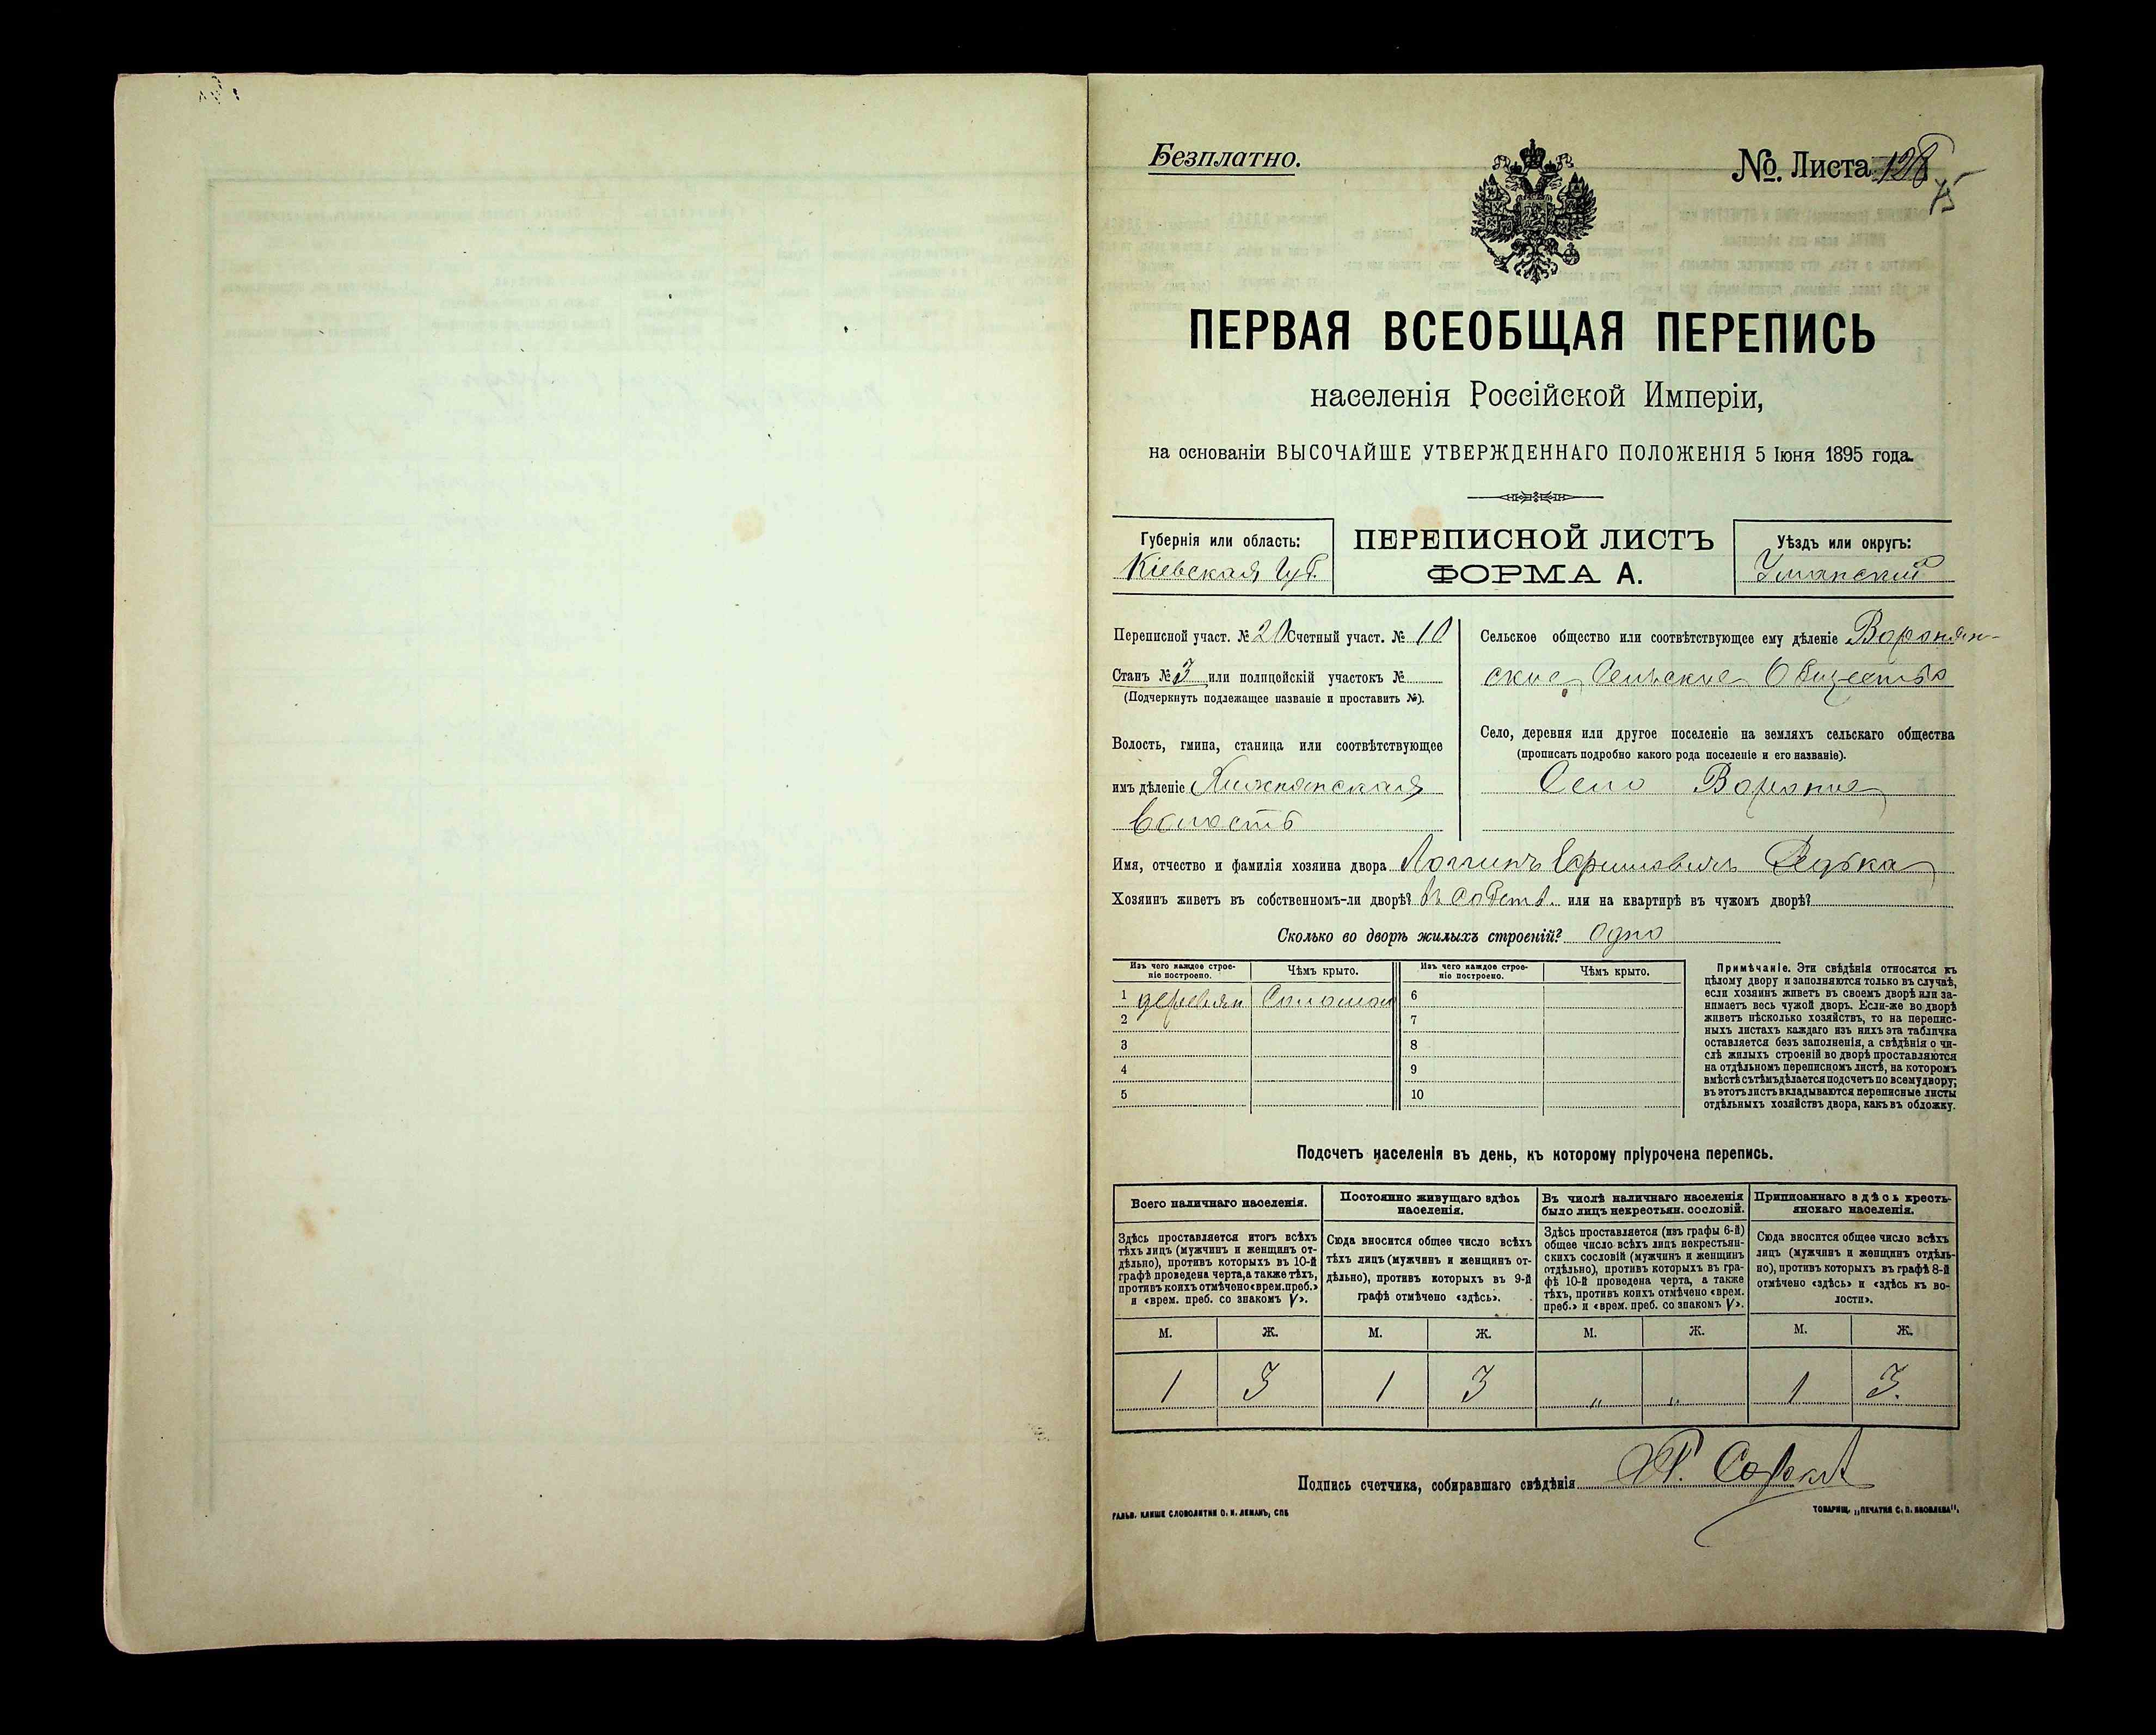 Безплатно.
№. Листа 128
75
ПЕРВАЯ ВСЕОБЩАЯ ПЕРЕПИСЬ
населенія Россійской Имперіи,
на основаніи ВЫСОЧАЙШЕ УТВЕРЖДЕННАГО ПОЛОЖЕНІЯ 5 Іюня 1895 года.
Губернія или область:
Кіевская Губ.
ПЕРЕПИСНОЙ ЛИСТЪ
ФОРМА А.
Уѣздъ или округъ:
Уманский
Переписной участ. № 20 Счетный участ. № 10
Станъ № 3 или полицейскій участокъ №
(Подчеркнуть подлежащее названіе и проставить №).
Волость, гмина, станица или соотвѣтствующее
имъ дѣленіе
волость
Сельское общество или соотвѣтствующее ему дѣленіе Воронян-
ское Сельское Общество
Село, деревня или другое поселеніе на земляхъ сельскаго общества
(прописать подробно какого рода поселеніе и его названіе).
Село Вороное
Имя, отчество и фамилія хозяина двора Логгинъ Ефимовичъ Редька
Хозяинъ живетъ въ собственномъ-ли дворѣ? въ собств. или на квартирѣ въ чужомъ дворѣ?
Сколько во дворѣ жилыхъ строеній? Одно
Изъ чего каждое строе-
ніе построено.
Чѣмъ крыто.
Изъ чего каждое строе-
ніе построено.
Чѣмъ крыто.
1 деревян Соломой 6
2 7
3 8
4 9
5 10
Примѣчаніе. Эти свѣдѣнія относятся къ
цѣлому двору и заполняются только въ случаѣ,
если хозяинъ живетъ въ своемъ дворѣ или за-
нимаетъ весь чужой дворъ. Если-же во дворѣ
живетъ нѣсколько хозяйствъ, то на перепис-
ныхъ листахъ каждаго изъ нихъ эта табличка
оставляется безъ заполненія, а свѣдѣнія о чи-
слѣ жилыхъ строеній во дворѣ проставляются
на отдѣльномъ переписномъ листѣ, на которомъ
вмѣстѣ съ тѣмъ дѣлается подсчетъ по всему двору;
въ этотъ листъ вкладываются переписные листы
отдѣльныхъ хозяйствъ двора, какъ въ обложку.
Подсчетъ населенія въ день, къ которому пріурочена перепись.
Всего наличнаго населенія.
Здѣсь проставляется итогъ всѣхъ
тѣхъ лицъ (мужчинъ и женщинъ от-
дѣльно), противъ которыхъ въ 10-й
графѣ проведена черта, а также тѣхъ,
противъ коихъ отмѣчено «врем. преб.»
и «врем. преб. со знакомъ V».
Постоянно живущаго здѣсь
населенія.
Сюда вносится общее число всѣхъ
тѣхъ лицъ (мужчинъ и женщинъ от-
дѣльно), противъ которыхъ въ 9-й
графѣ отмѣчено «здѣсь».
Въ числѣ наличнаго населенія
было лицъ некрестьян. сословій.
Здѣсь проставляется (изъ графы 6-й)
общее число всѣхъ лицъ некрестьян-
скихъ сословій (мужчинъ и женщинъ
отдѣльно), противъ которыхъ въ гра-
фѣ 10-й проведена черта, а также
тѣхъ, противъ коихъ отмѣчено «врем.
преб.» и «врем. преб. со знакомъ V».
Приписаннаго здѣсь кресть-
янскаго населенія.
Сюда вносится общее число всѣхъ
лицъ (мужчинъ и женщинъ отдѣль-
но), противъ которыхъ въ графѣ 8-й
отмѣчено «здѣсь» и «здѣсь къ во-
лости».
М. Ж. М. Ж. М. Ж. М. Ж.
1 3 1 3 „ „ 1 3.
Подпись счетчика, собиравшаго свѣдѣнія
ГАЛЬВ. КЛИШЕ СЛОВОЛИТНИ О. И. ЛЕМАНЪ, СПБ
ТОВАРИЩ. „ПЕЧАТНЯ С. П. ЯКОВЛЕВА“.